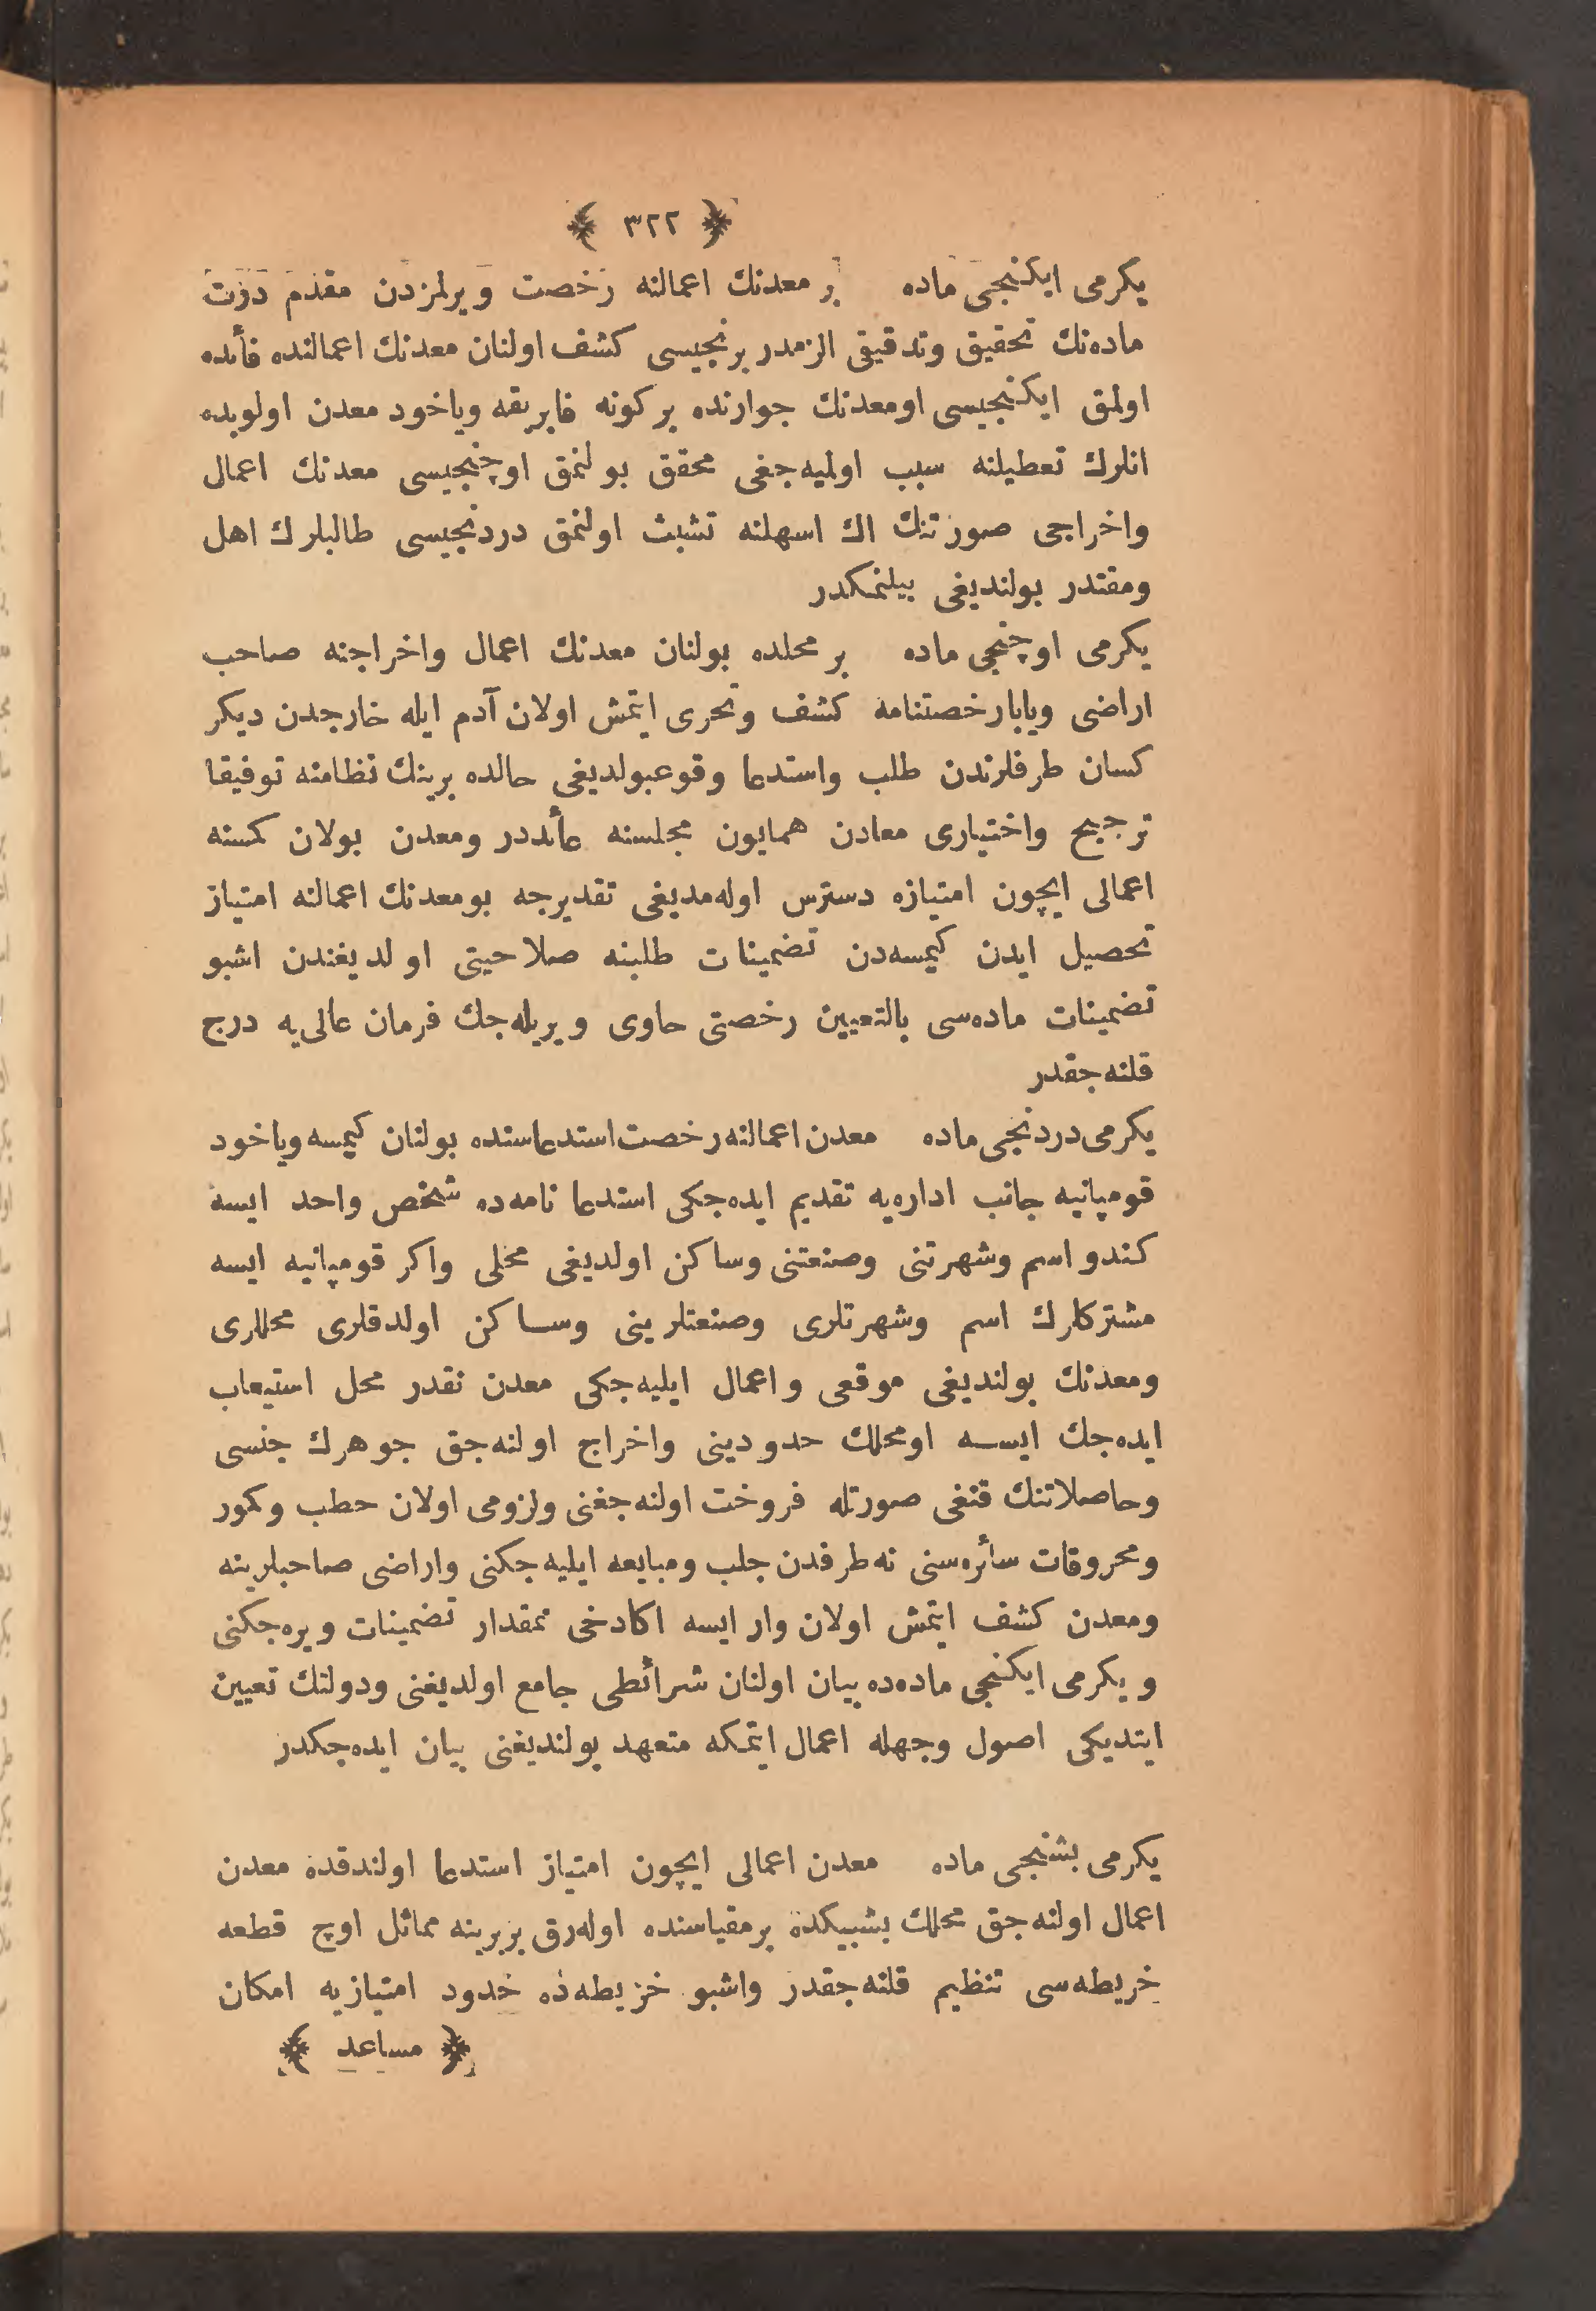 ﴿ ٣٢٢ ﴾
يكرمى ايكنجى ماده بر معدنك اعمالنه رخصت ويرلمزدن مقدم درت
ماده‌نك تحقيق وتدقيقى الزمدر برنجيسى كشف اولنان معدنك اعمالنده فأئده
اولمق ايكنجيسى اومعدنك جوارنده بركونه فابريقه وياخود معدن اولوبده
انلرك تعطيلنه سبب اولميه‌جغى محقق بولنمق اوچنجيسى معدنك اعمال
واخراجى صورتنك اك اسهلنه تشبث اولنمق دردنجيسى طالبلرك اهل
ومقتدر بولنديغى بيلنمكدر
يكرمى اوچنجى ماده بر محلده بولنان معدنك اعمال واخراجنه صاحب
اراضى ويابا رخصتنامه كشف وتحرى ايتمش اولان آدم ايله خارجدن ديكر
كسان طرفلرندن طلب واستدعا وقوعبولديغى حالده برينك نظامنه توفيقا
ترجيح واختيارى معادن همايون مجلسنه عأئددر ومعدن بولان كمسنه
اعمالى ايچون امتيازه دسترس اوله‌مديغى تقديرجه بومعدنك اعمالنه امتياز
تحصيل ايدن كيمسه‌دن تضمينات طلبنه صلاحيتى اولديغندن اشبو
تضمينات ماده‌سى بالتعيين رخصتى حاوى ويريله‌جك فرمان عالى‌يه درج
قلنه‌جقدر
يكرمى دردنجى ماده معدن اعمالنه رخصت استدعاسنده بولنان كيمسه وياخود
قومپانيه جانب اداره‌يه تقديم ايده‌جكى استدعا نامه‌ده شخص واحد ايسه
كندو اسم وشهرتنى وصنعتنى وساكن اولديغى محلى واكر قومپانيه ايسه
مشتركلرك اسم وشهرتلرى وصنعتلرينى وساكن اولدقلرى محللرى
ومعدنك بولنديغى موقعى واعمال ايليه‌جكى معدن نقدر محل استيعاب
ايده‌جك ايسه اومحلك حدودينى واخراج اولنه‌جق جوهرك جنسى
وحاصلاتنك قنغى صورتله فروخت اولنه‌جغنى ولزومى اولان حطب وكمور
ومحروقات سأئره‌سنى نه‌طرفدن جلب ومبايعه ايليه‌جكنى واراضى صاحبلرينه
ومعدن كشف ايتمش اولان وار ايسه اكادخى نمقدار تضمينات ويره‌جكنى
ويكرمى ايكنجى ماده‌ده بيان اولنان شرأئطى جامع اولديغنى ودولتك تعيين
ايتديكى اصول وجهله اعمال ايتمكه متعهد بولنديغنى بيان ايده‌جكدر
يكرمى بشنجى ماده معدن اعمالى ايچون امتياز استدعا اولندقده معدن
اعمال اولنه‌جق محلك بشبيكده برمقياسنده اوله‌رق بربرينه مماثل اوچ قطعه
خريطه‌سى تنظيم قلنه‌جقدر واشبو خريطه‌ده حدود امتيازيه امكان
﴿ مساعد ﴾